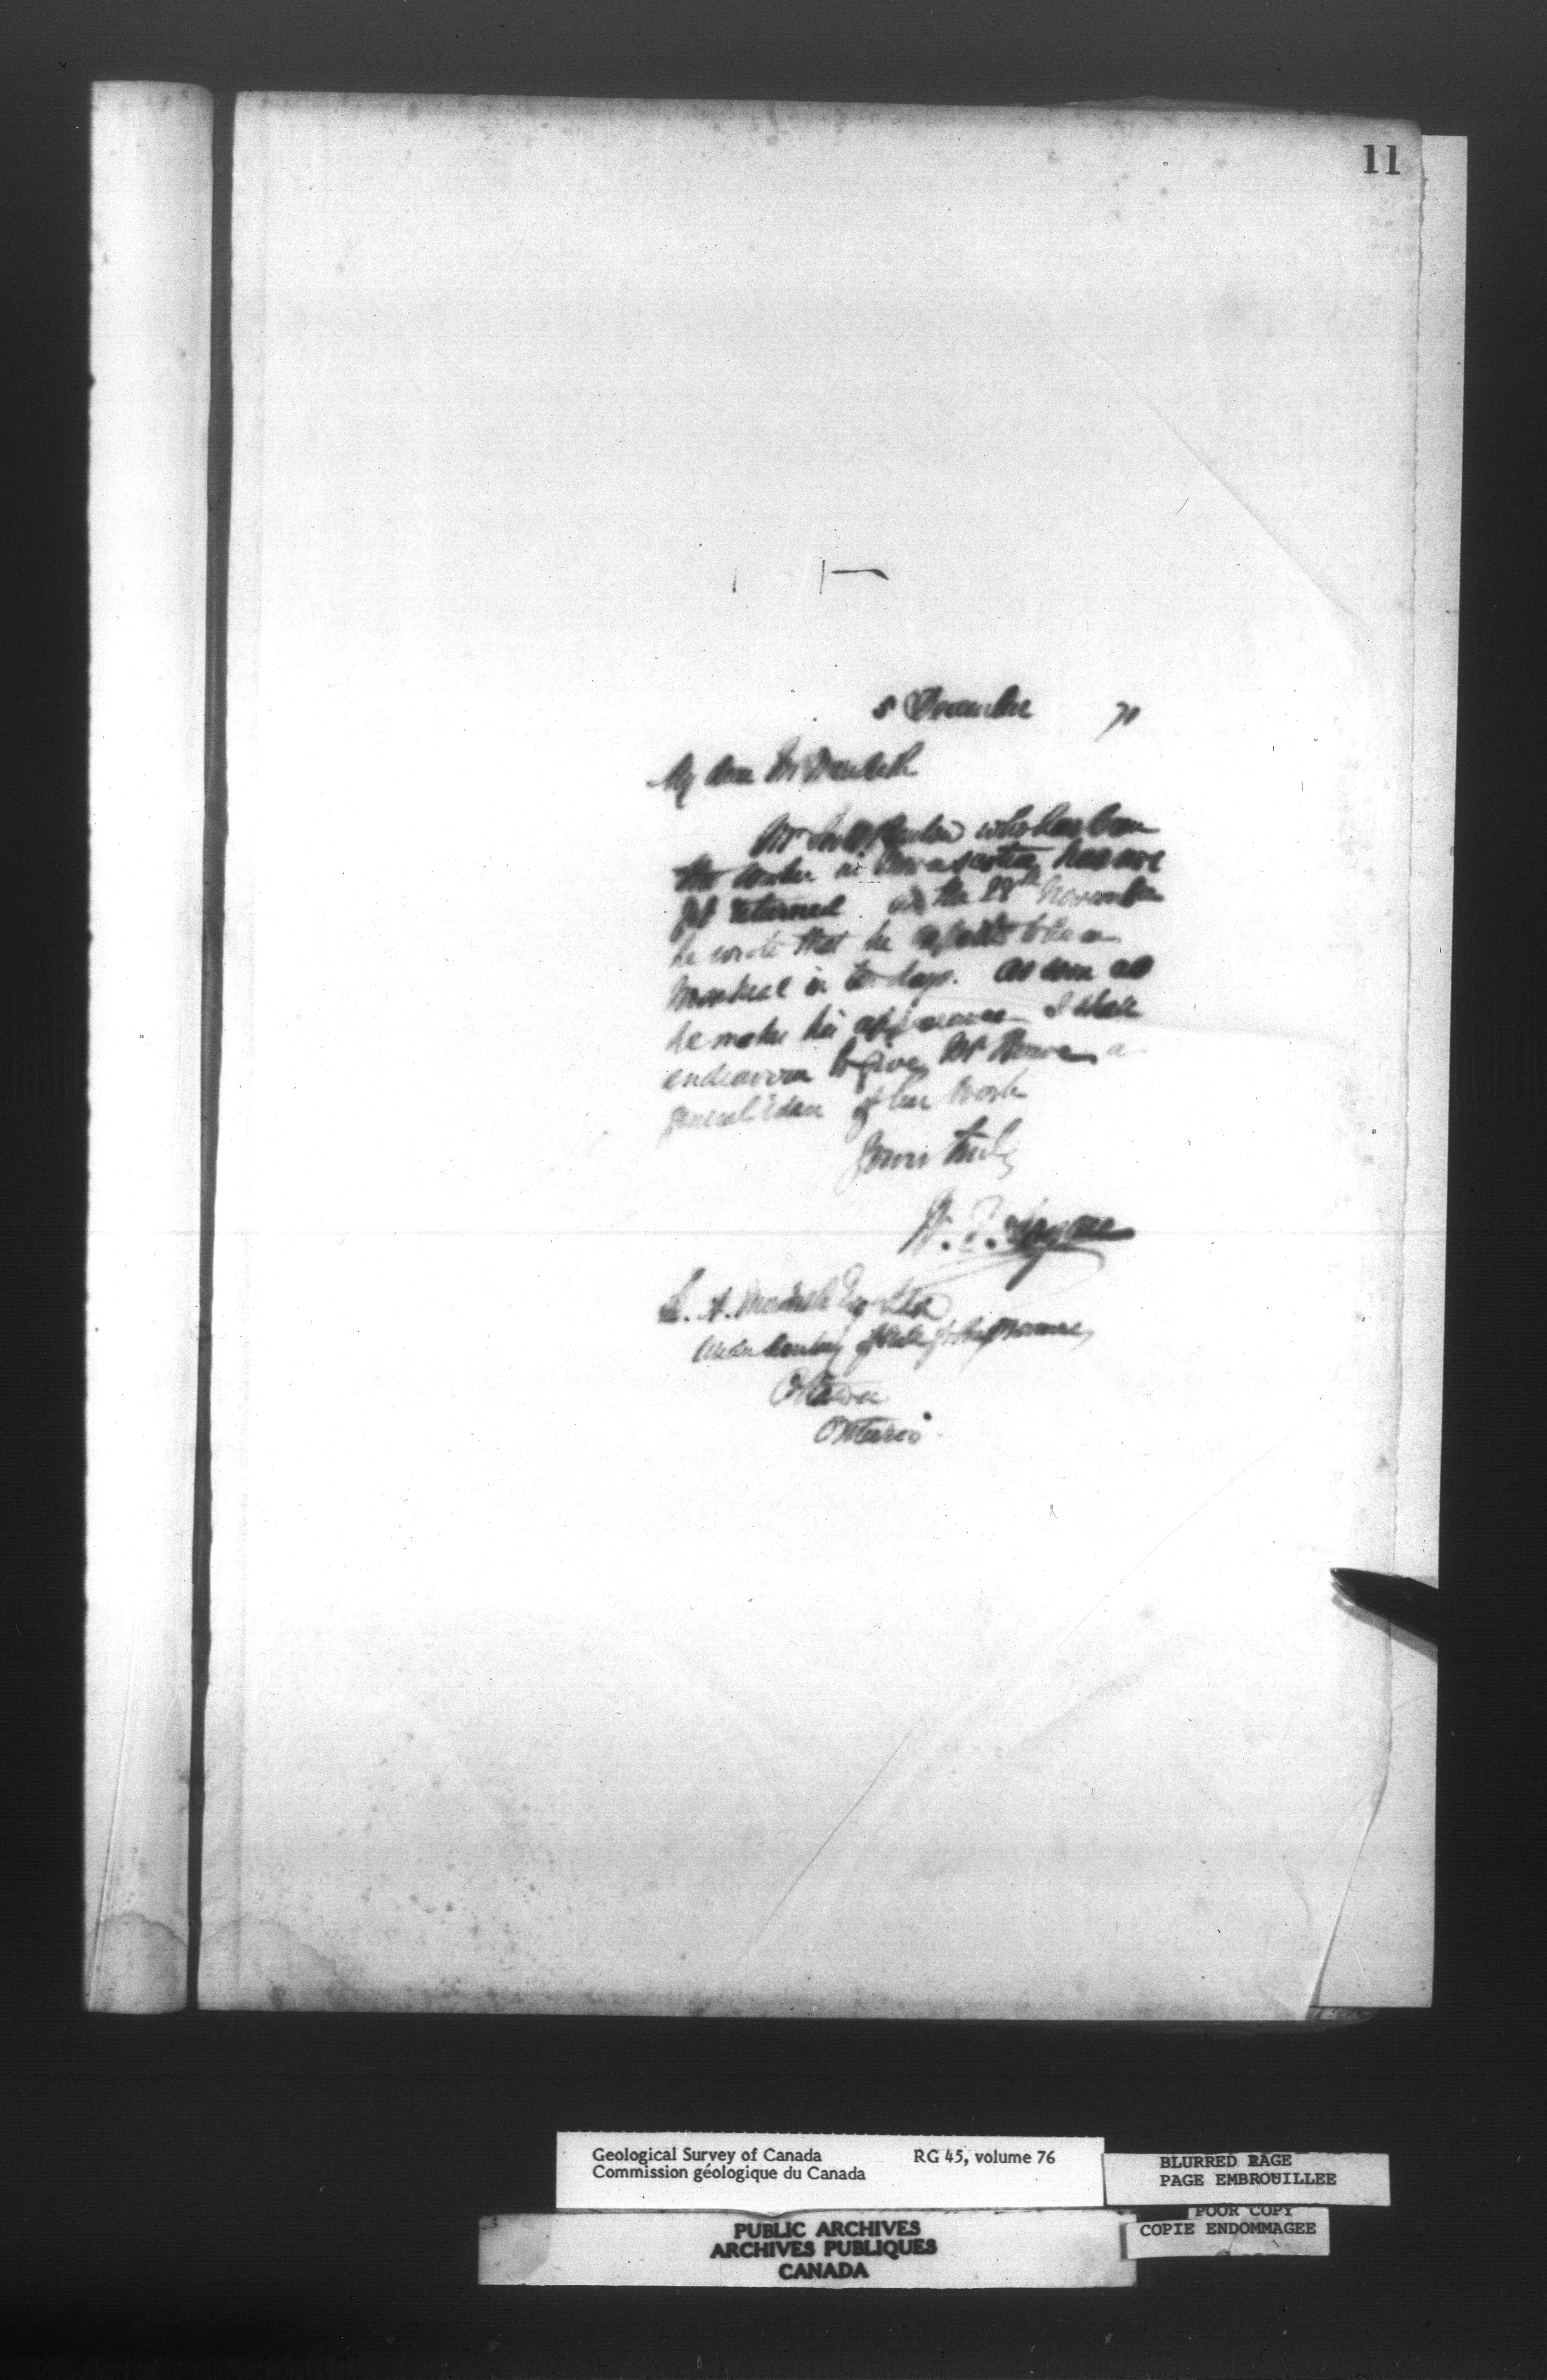 11
5 December 71
My dear Mr Meredith
Mr who has been
this winter in Nova Scotia has not
yet returned. On the 28th November
he wrote that he expected to be in
Montreal in ten days. As soon as
he makes his appearance I shall
endeavour to give Mr Howe a
general idea of his work
Yours truly
W. E. Logan
E. A. Meredith Esq
Under Secretary of State for the Provinces
Ottawa
Ontario
Geological Survey of Canada RG 45, volume 76
Commission géologique du Canada
BLURRED PAGE
PAGE EMBROUILLEE
POOR COPY
COPIE ENDOMMAGEE
PUBLIC ARCHIVES
ARCHIVES PUBLIQUES
CANADA